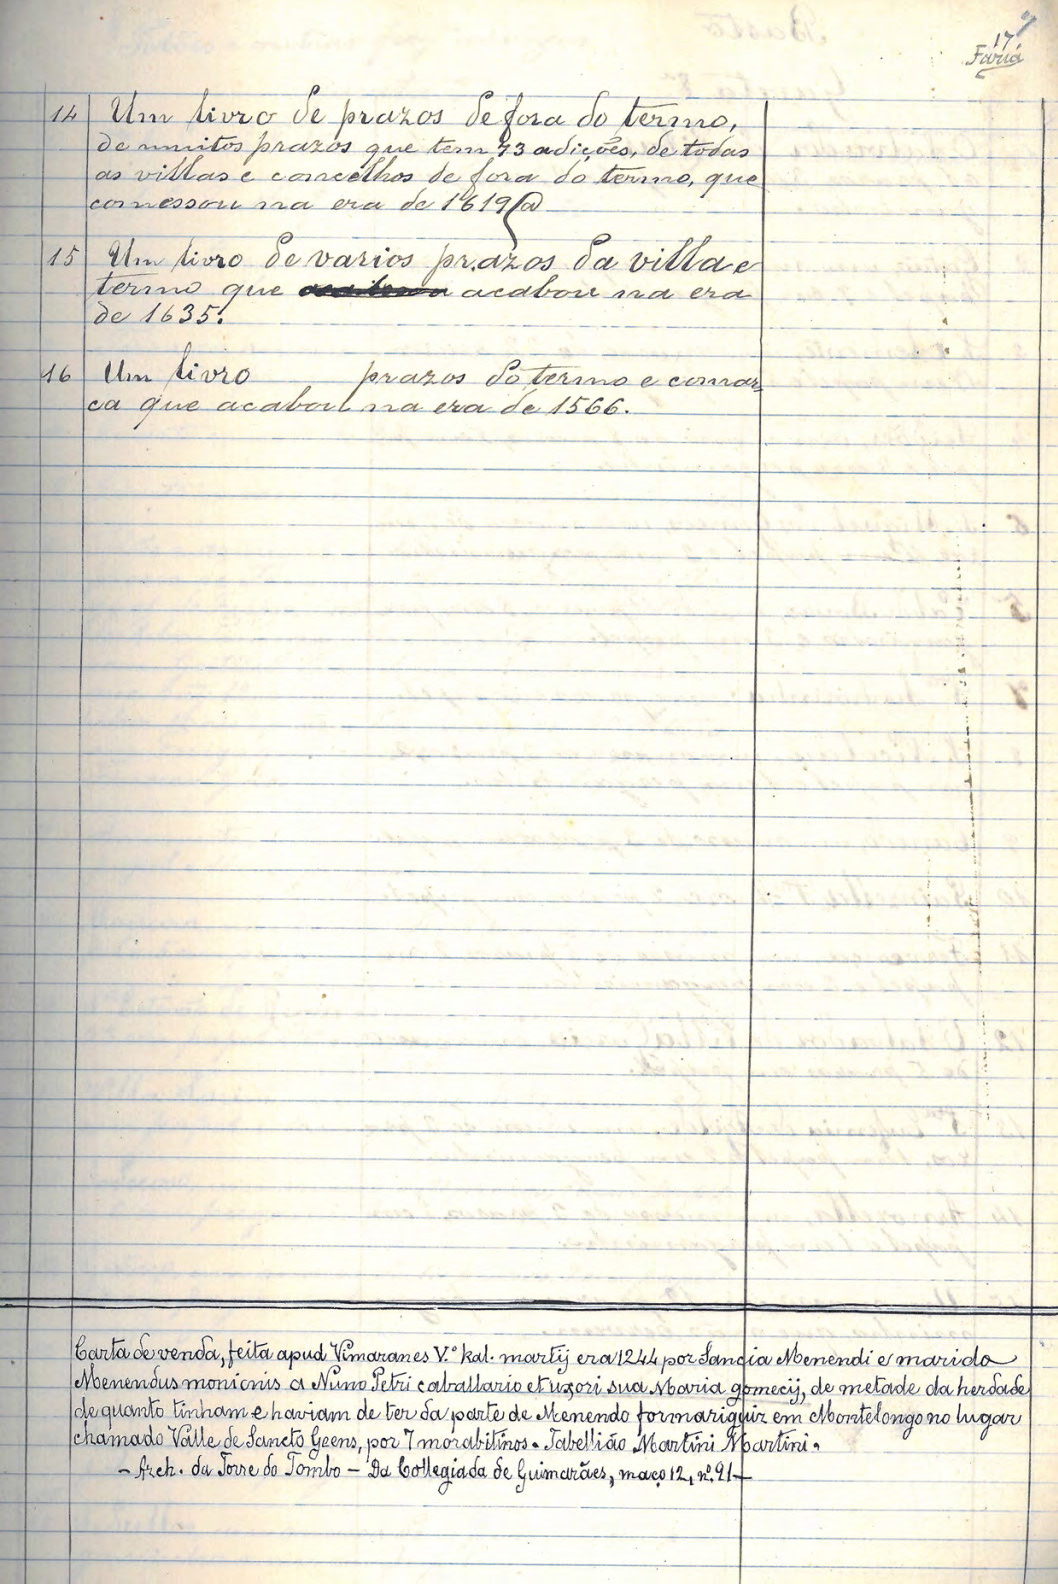 17
Faria
14 Um livro de prazos de fora do termo,
de muitos prazos que tem 73 adições, de todas
as villas e concelhos de fora do termo, que
comessou na era de 1619 (a)
15 Um livro de varios prazos da villa e
termo que acabou na era
de 1635.
16 Um livro prazos do termo e comar-
ca que acabou na era de 1566.
Carta de venda, feita apud Vimaranes V.º kal. martij era 1244 por Sancia Menendi e marido
Menendus monicnis a Nuno Petri caballario et uxori sua Maria gomecij, de metade da herdade
de quanto tinham e haviam de ter da parte de Menendo formariguiz em Montelongo no lugar
chamado Valle de Sancto Geens, por 7 morabitinos. Tabellião Martini Martini.
- Arch. da Torre do Tombo - Da Collegiada de Guimarães, maço 12, nº 91 -